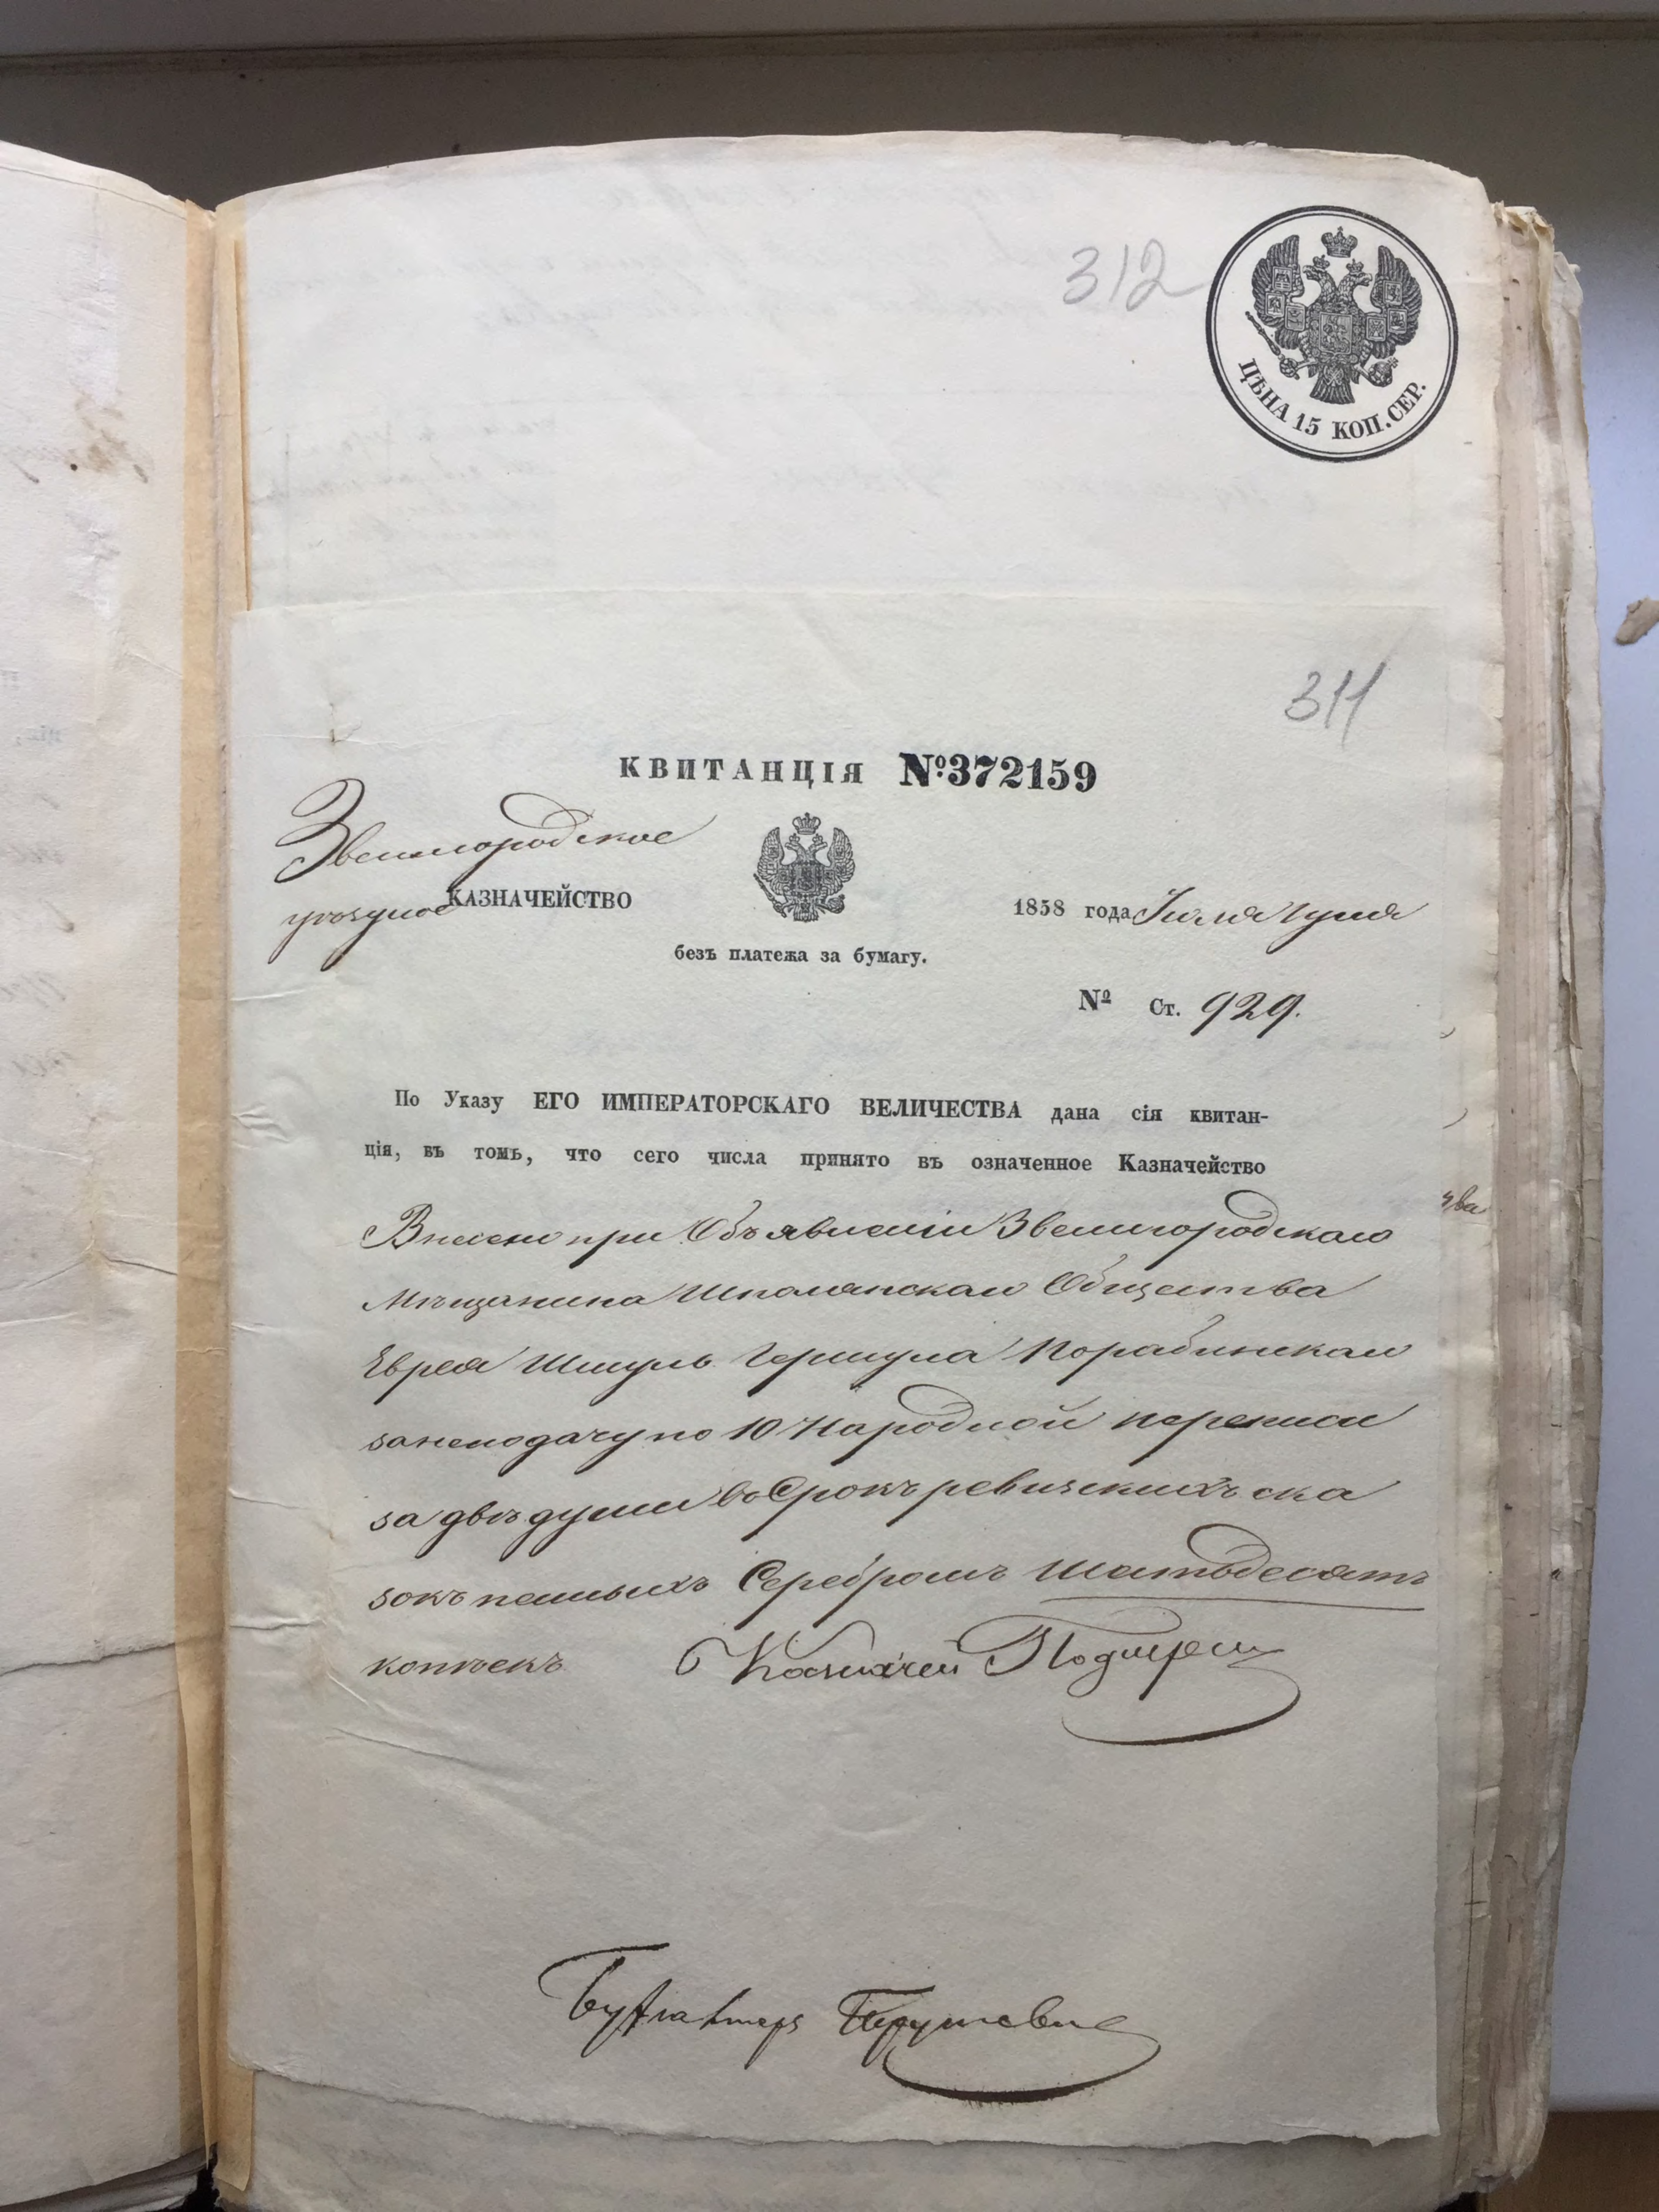 312
ЦѢНА 15 КОП. СЕР.
311
КВИТАНЦІЯ №372159
Звенигородское
уѣздное КАЗНАЧЕЙСТВО
1858 года Іюля
безъ платежа за бумагу.
№ Ст. 929.
По Указу ЕГО ИМПЕРАТОРСКАГО ВЕЛИЧЕСТВА дана сія квитан-
ція, въ томъ, что сего числа принято въ означенное Казначейство
Внесено при Объявленіи Звенигородскаго
Мѣщанина Шполянскаго Общества
Еврея Шмуль Гершула
за неподачу по 10 Народной переписи
за двѣ души въ Срокъ ревизскихъ ска
зокъ Серебромъ Шестьдесятъ
копѣекъ Казначей
Бухгалтеръ